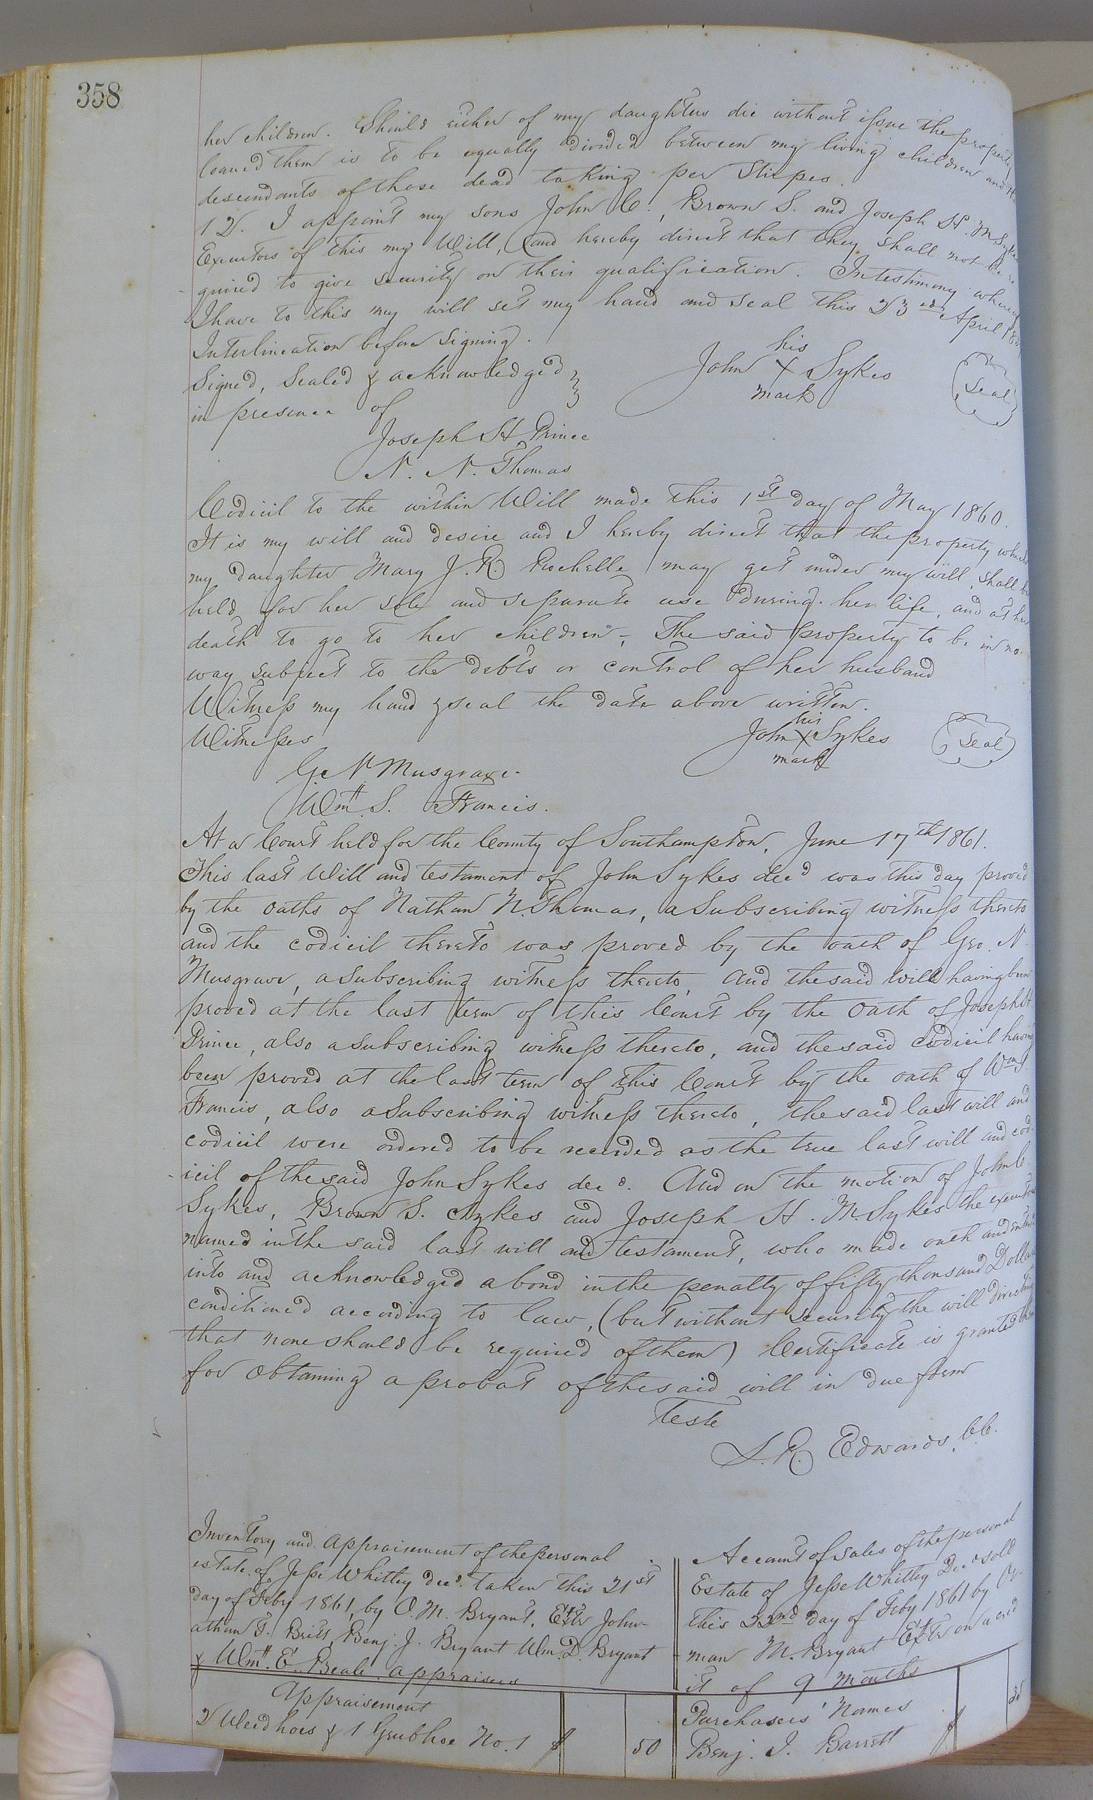 358
her children. Should either of my daughters die without issue the property
loaned them is to be equally divided between my living children and the
descendants of those dead taking per Stirpes.
12. I appoint my sons John C., Brown S. and Joseph H. M. Sykes
Executors of this my Will, (and hereby direct that they shall not be re
quired to give security on their qualification. In testimony whereof
I have to this my will set my hand and seal this 23rd April
Interlineation before signing.
Signed, Sealed & acknowledged
in presence of
his
John X Sykes
mark
Seal
Joseph H. Prince
N. N. Thomas
Codicil to the within Will made this 1st day of May 1860.
It is my will and desire and I hereby direct that the property which
my daughter Mary J. R. Rochelle may get under my will shall be
held for her sole and separate use during her life, and at her
death to go to her children. The said property to be in no
way subject to the debts or control of her husband
Witness my hand & seal the date above written.
Witnesses
his
John X Sykes
mark
Seal
G. N. Musgrave.
Wm. S. Francis.
At a Court held for the County of Southampton, June 17th 1861.
This last Will and testament of John Sykes decd was this day proved
by the oaths of Nathan N. Thomas, a Subscribing witness thereto
and the codicil thereto was proved by the oath of Geo. N.
Musgrave, a subscribing witness thereto, And the said Will having been
proved at the last term of this Court by the Oath of Joseph H
Prince, also a subscribing witness thereto, and the said codicil having
been proved at the last term of this Court by the oath of Wm S.
Francis, also a Subscribing witness thereto, the said last will and
codicil were ordered to be recorded as the true last will and cod
icil of the said John Sykes decd. And on the motion of John C.
Sykes, Brown S. Sykes and Joseph H. M. Sykes the executors
named in the said last will and testament, who made oath and entered
into and acknowledged a bond in the penalty of fifty thousand Dollars
conditioned according to law, (but without security the will directing
that none should be required of them) Certificate is granted them
for obtaining a probat of the said will in due form
Teste
L. R. Edwards, CC.
Inventory and appraisement of the personal
estate of Jesse Whitley decd. taken this 21st
day of Feby 1861, by O. M. Bryant, Extr John-
athan T. Britt, Benj. J. Bryant Wm. D. Bryant
& Wm. E. Beale. appraisers
Appraisement
2 Weed hoes & 1 Grub hoe No. 1 $ 50
Account of Sales of the personal
Estate of Jesse Whitley Decd sold
this 22nd day of Feby 1861 by Or-
man M. Bryant Extr on a cred
it of 9 months
Purchasers' Names
Benj. J. Barrett $